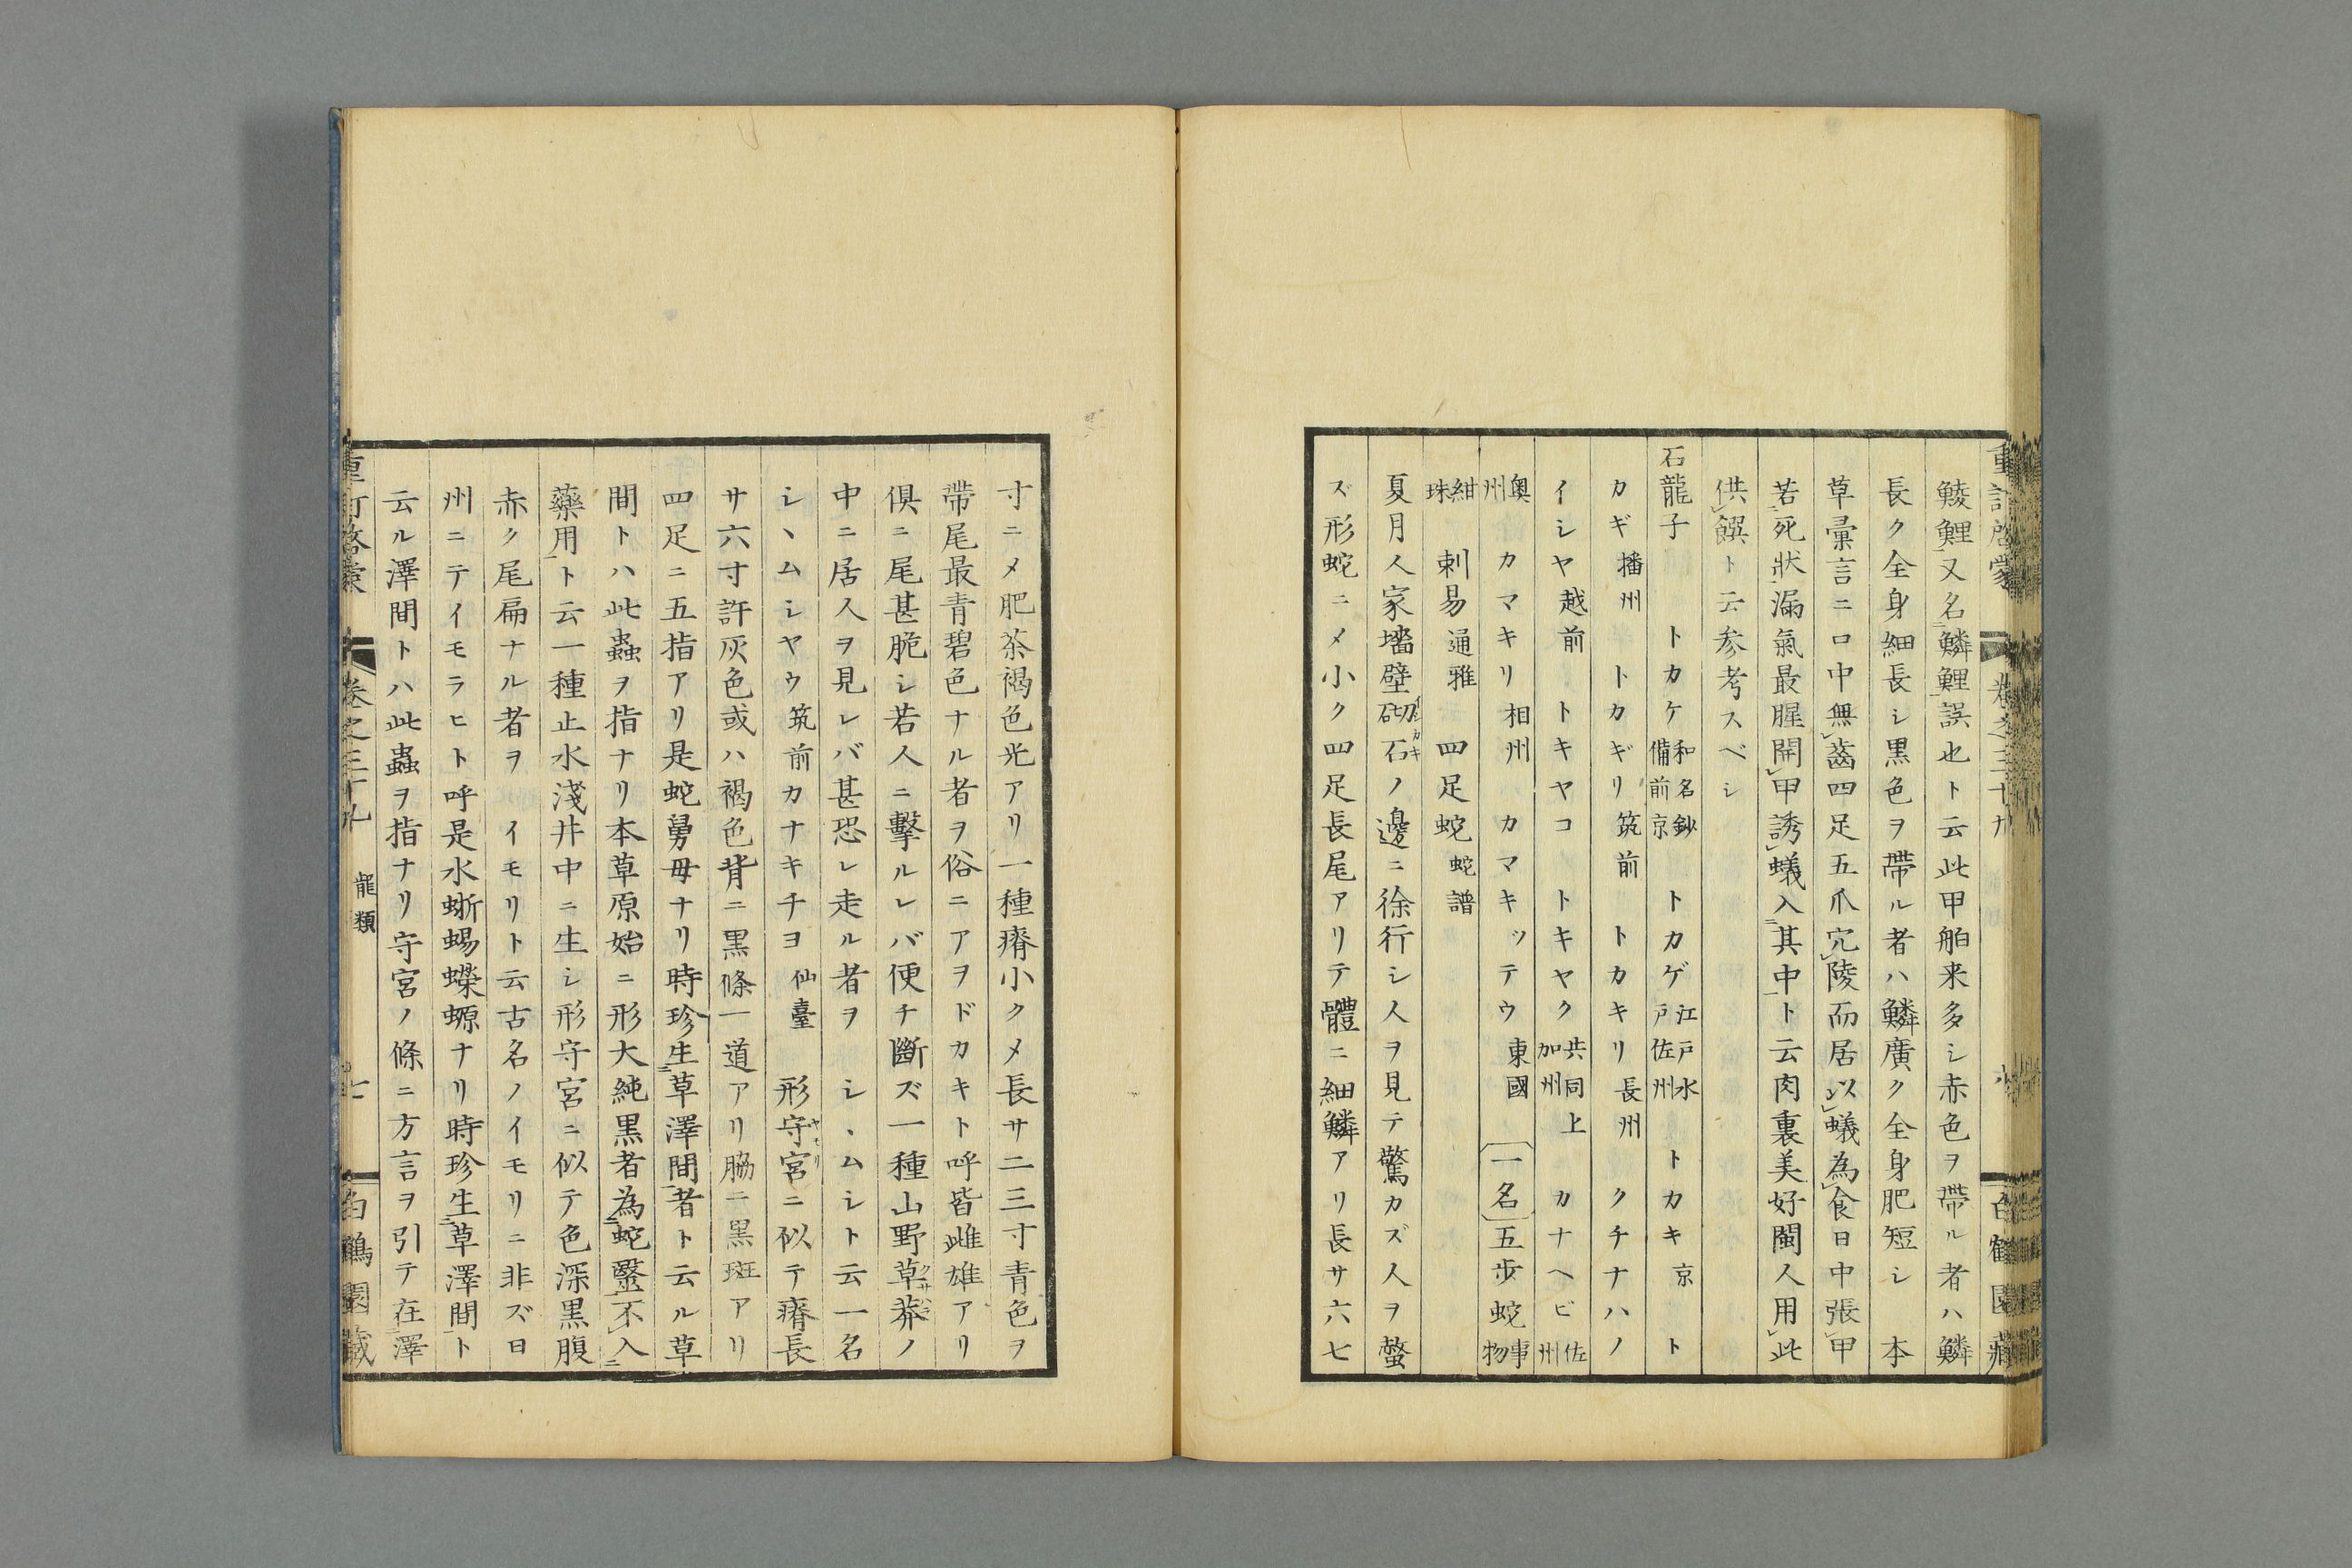 重訂啓蒙 卷之三十九 六 百鶴園藏
鯪鯉又名鱗鯉誤也ト云此甲舶来多シ赤色ヲ帶ル者ハ鱗
長ク全身細長シ黒色ヲ帶ル者ハ鱗廣ク全身肥短シ 本
草彙言ニ口中無齒四足五爪穴陵而居以蟻為食日中張甲
若死狀漏氣最腥開甲誘蟻入其中ト云肉裏美好閩人用此
供饌ト云参考スベシ
石龍子 トカケ 和名鈔備前京 トカゲ 江戸水戸佐州 トカキ 京 ト
カギ 播州 トカギリ 筑前 トカキリ 長州 クチナハノ
イシヤ 越前 トキヤコ トキヤク 共同上加州 カナヘビ 佐州
奥州 カマキリ 相州 カマキッテウ 東國 一名 五歩蛇 事物
紺珠 刺易 通雅 四足蛇 蛇譜
夏月人家墻壁砌石イシカキノ邊ニ徐行シ人ヲ見テ驚カズ人ヲ螫
ズ形蛇ニメ小ク四足長尾アリテ體ニ細鱗アリ長サ六七
寸ニメ肥茶褐色光アリ一種瘠小クメ長サ二三寸青色ヲ
帶尾最青碧色ナル者ヲ俗ニアヲドカキト呼皆雌雄アリ
倶ニ尾甚脆シ若人ニ擊ルレバ便チ斷ズ一種山野草莽ノ
中ニ居人ヲ見レバ甚恐レ走ル者ヲ シヽムシト云一名
シヽムシヤウ 筑前 カナキチヨ 仙臺 形守宮ヤモリニ似テ瘠長
サ六寸許灰色或ハ褐色背ニ黒條一道アリ脇ニ黒斑アリ
四足ニ五指アリ是蛇舅母ナリ時珍生草澤間者ト云ル草
間トハ此蟲ヲ指ナリ本草原始ニ形大純黒者為蛇醫不入
藥用ト云一種止水淺井中ニ生シ形守宮ニ似テ色深黒腹
赤ク尾扁ナル者ヲ イモリト云古名ノイモリニ非ズ日
州ニテイモラヒト呼是水蜥蜴蠑螈ナリ時珍生草澤間ト
云ル澤間トハ此蟲ヲ指ナリ守宮ノ條ニ方言ヲ引テ在澤
重訂啓蒙 卷之三十九 龍類 七 百鶴園藏